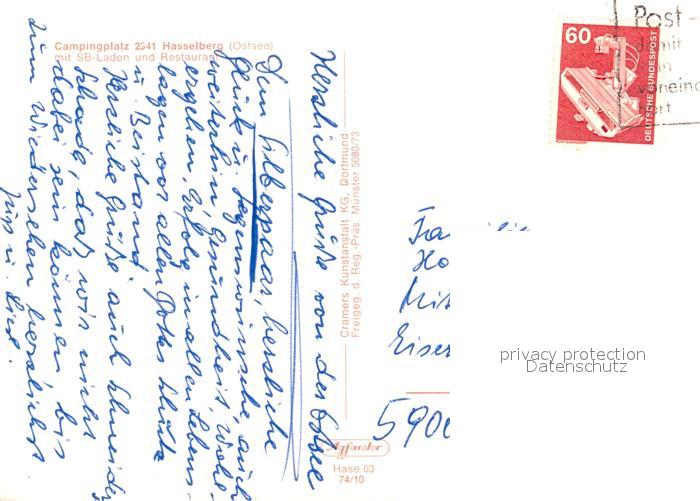 Campingplatz 2341 Hasselberg (Ostsee)
mit SB-Laden und Restaurant
Herzliche Grüße von der Ostsee
Dem Silberpaar, herzliche
Glück u. Segenswünsche, auch
weiterhin Gesundheit, Wohl-
ergehen, Erfolg in allen Lebens-
lagen vor allen Gottes Schutz
u. Beistand.
Herzliche Grüße auch Schneider
Schade, daß wir nicht
dabei sein können bis
zum Wiedersehen herzlichst
Cramers Kunstanstalt KG, Dortmund
Freigeg. d. Reg.-Präs. Münster 5080/73
Agfacolor
Hase 03
74/10
60
DEUTSCHE BUNDESPOST
Post-
Eiser
5900
privacy protection
Datenschutz